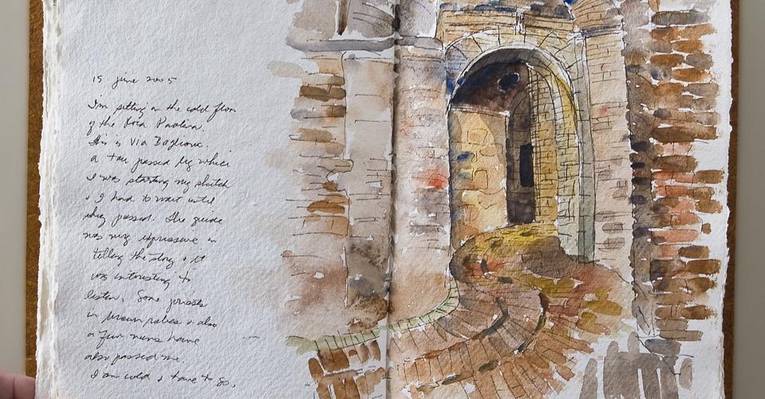 15 June 2005
I'm sitting on the cold floor
of the Rocca Paolina.
This is Via Baglioni.
a tour passed by while
I was starting my sketch
& I had to wait until
they passed. The guide
was very expressive in
telling the story & it
was interesting to
listen. Some priests
in brown robes & also
a few nuns have
also passed me.
I am cold & have to go.